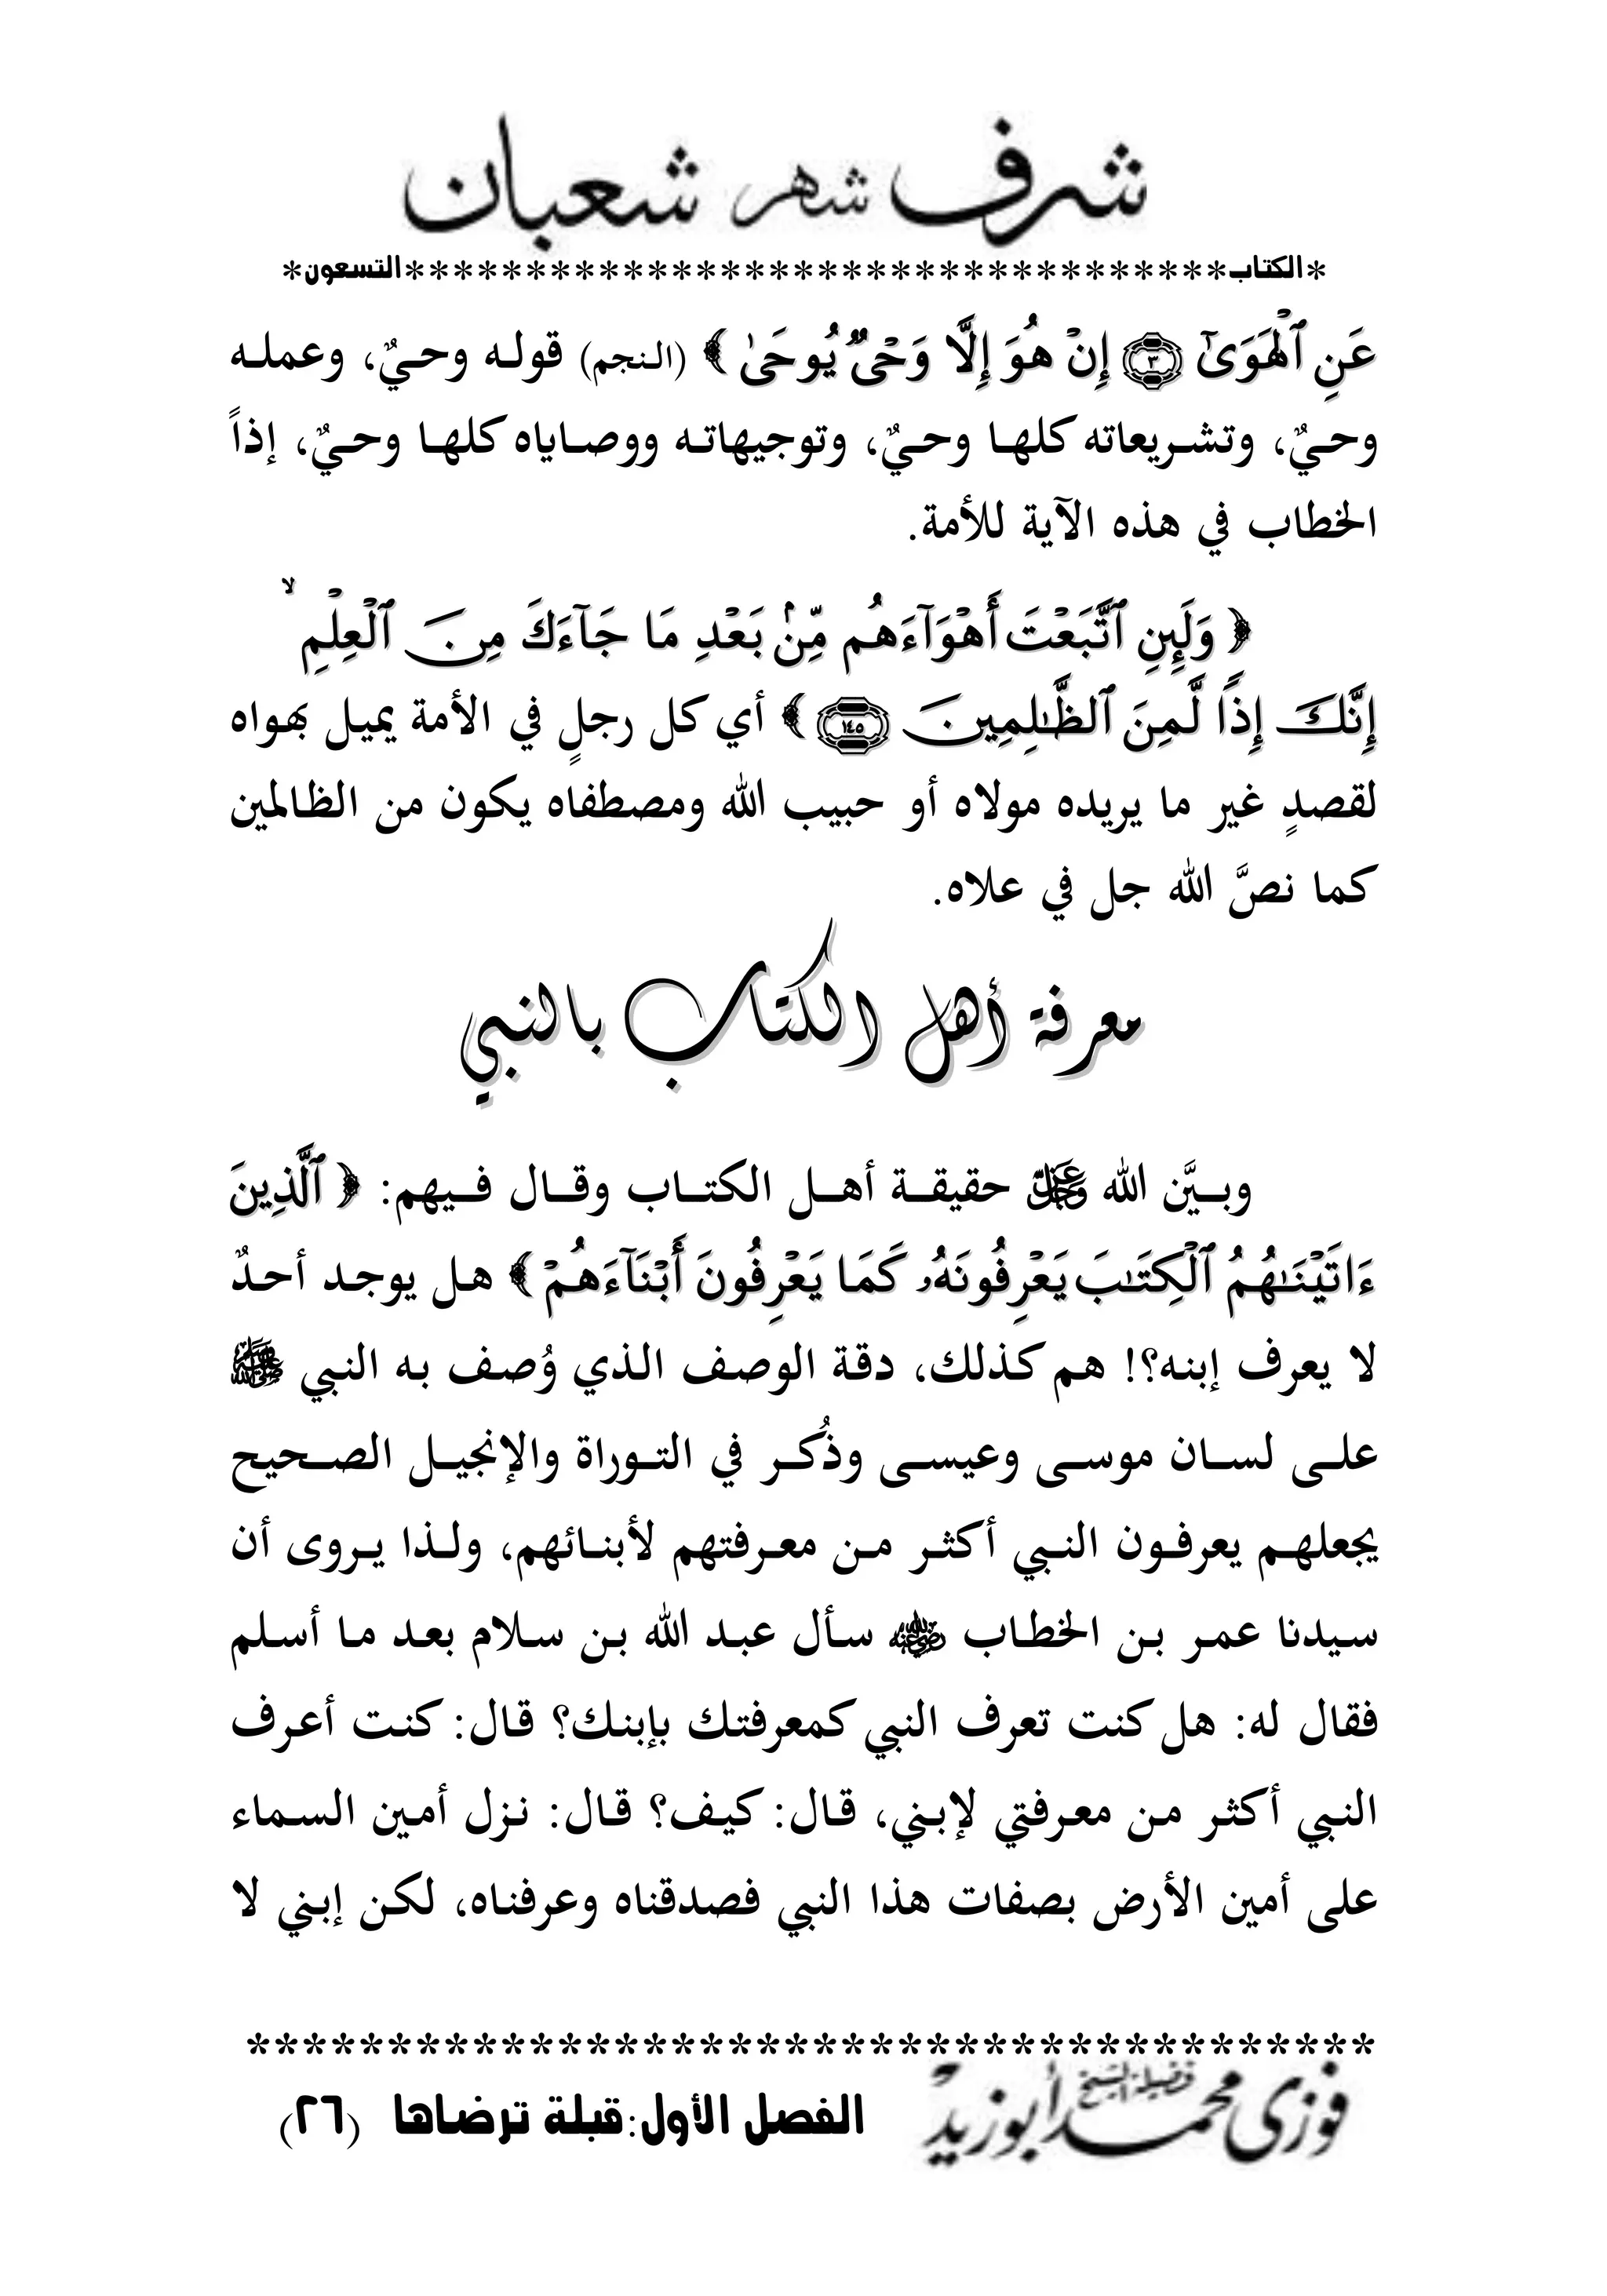 شرف شهر شعبان
*الكتاب**********************************التسعون*
عَنِ ٱلْهَوَىٰٓ ۝٣ إِنْ هُوَ إِلَّا وَحْىٌ يُوحَىٰ ﴾ (النجم) قوله وحيٌ، وعمله
وحيٌ، وتشريعاته كلها وحيٌ، وتوجيهاته ووصاياه كلها وحيٌ، إذاً
الخطاب في هذه الآية للأمة.
﴿ وَلَئِنِ ٱتَّبَعْتَ أَهْوَآءَهُم مِّنۢ بَعْدِ مَا جَآءَكَ مِنَ ٱلْعِلْمِ ۙ
إِنَّكَ إِذًا لَّمِنَ ٱلظَّٰلِمِينَ ۝١٤٥ ﴾ أي كل رجلٍ في الأمة يميل بهواه
لقصدٍ غير ما يريده مولاه أو حبيب الله ومصطفاه يكون من الظالمين
كما نصَّ الله جل في علاه.
معرفة أهل الكتاب بالنبي
وبيَّن الله عَزَّ وَجَلَّ حقيقة أهل الكتاب وقال فيهم: ﴿ ٱلَّذِينَ
ءَاتَيْنَٰهُمُ ٱلْكِتَٰبَ يَعْرِفُونَهُۥ كَمَا يَعْرِفُونَ أَبْنَآءَهُمْ ﴾ هل يوجد أحدٌ
لا يعرف إبنه؟! هم كذلك، دقة الوصف الذي وُصف به النبي ﷺ
على لسان موسى وعيسى وذُكر في التوراة والإنجيل الصحيح
يجعلهم يعرفون النبي أكثر من معرفتهم لأبنائهم، ولذا يروى أن
سيدنا عمر بن الخطاب رضي الله عنه سأل عبد الله بن سلام بعد ما أسلم
فقال له: هل كنت تعرف النبي كمعرفتك بإبنك؟ قال: كنت أعرف
النبي أكثر من معرفتي لإبني، قال: كيف؟ قال: نزل أمين السماء
على أمين الأرض بصفات هذا النبي فصدقناه وعرفناه، لكن إبني لا
****************************************
فضيلة الشيخ فوزى محمد أبوزيد الفصل الأول:قبلة ترضاها (٢٦)